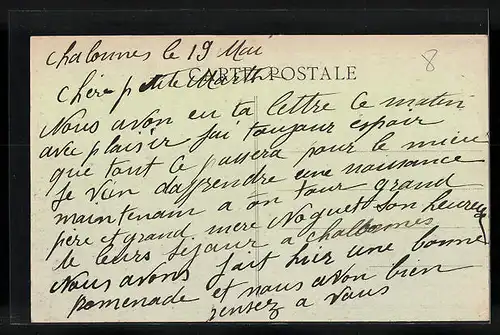 Chalonnes le 19 Mai
8
CARTE POSTALE
Chère petite Marthe
Nous avon eu ta lettre ce matin
avec plaisir jai toujour espoir
que tout ce passera pour le mieu
Je vien daprendre une naissance
maintenam a on tour grand
père et grand mere Noguet son heureu
de leurs séjour a chalonnes
Nous avons fait hier une bonne
promenade et nous avon bien
pensez a vous